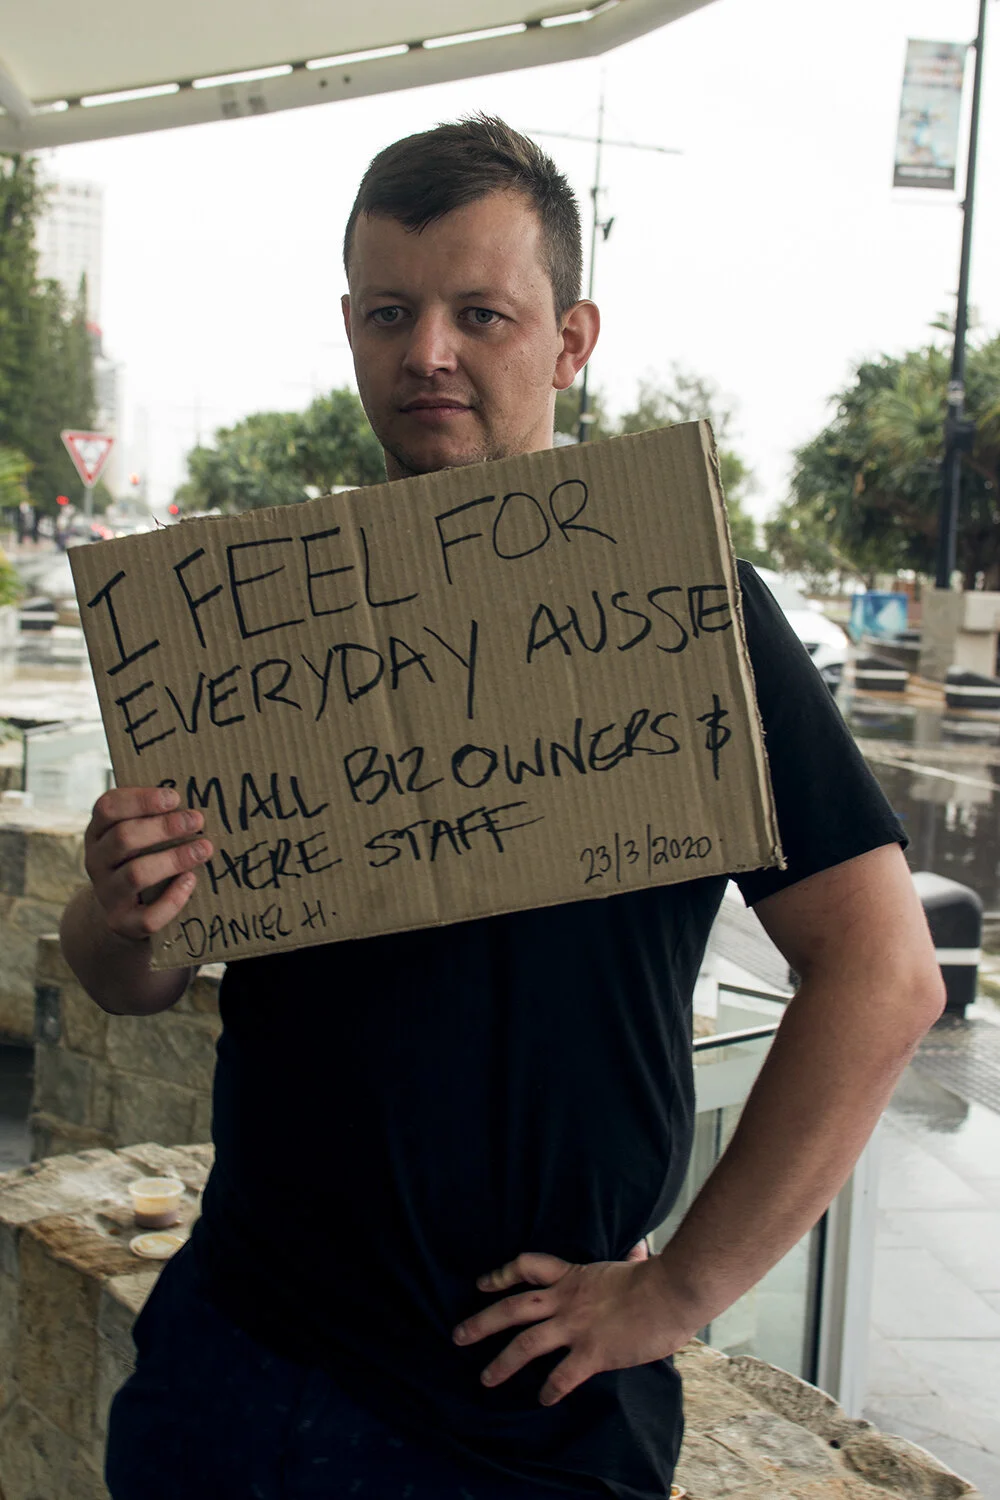 I FEEL FOR
EVERYDAY AUSSIE
SMALL BIZ OWNERS $
HERE STAFF
23/3/2020.
-DANIEL H.